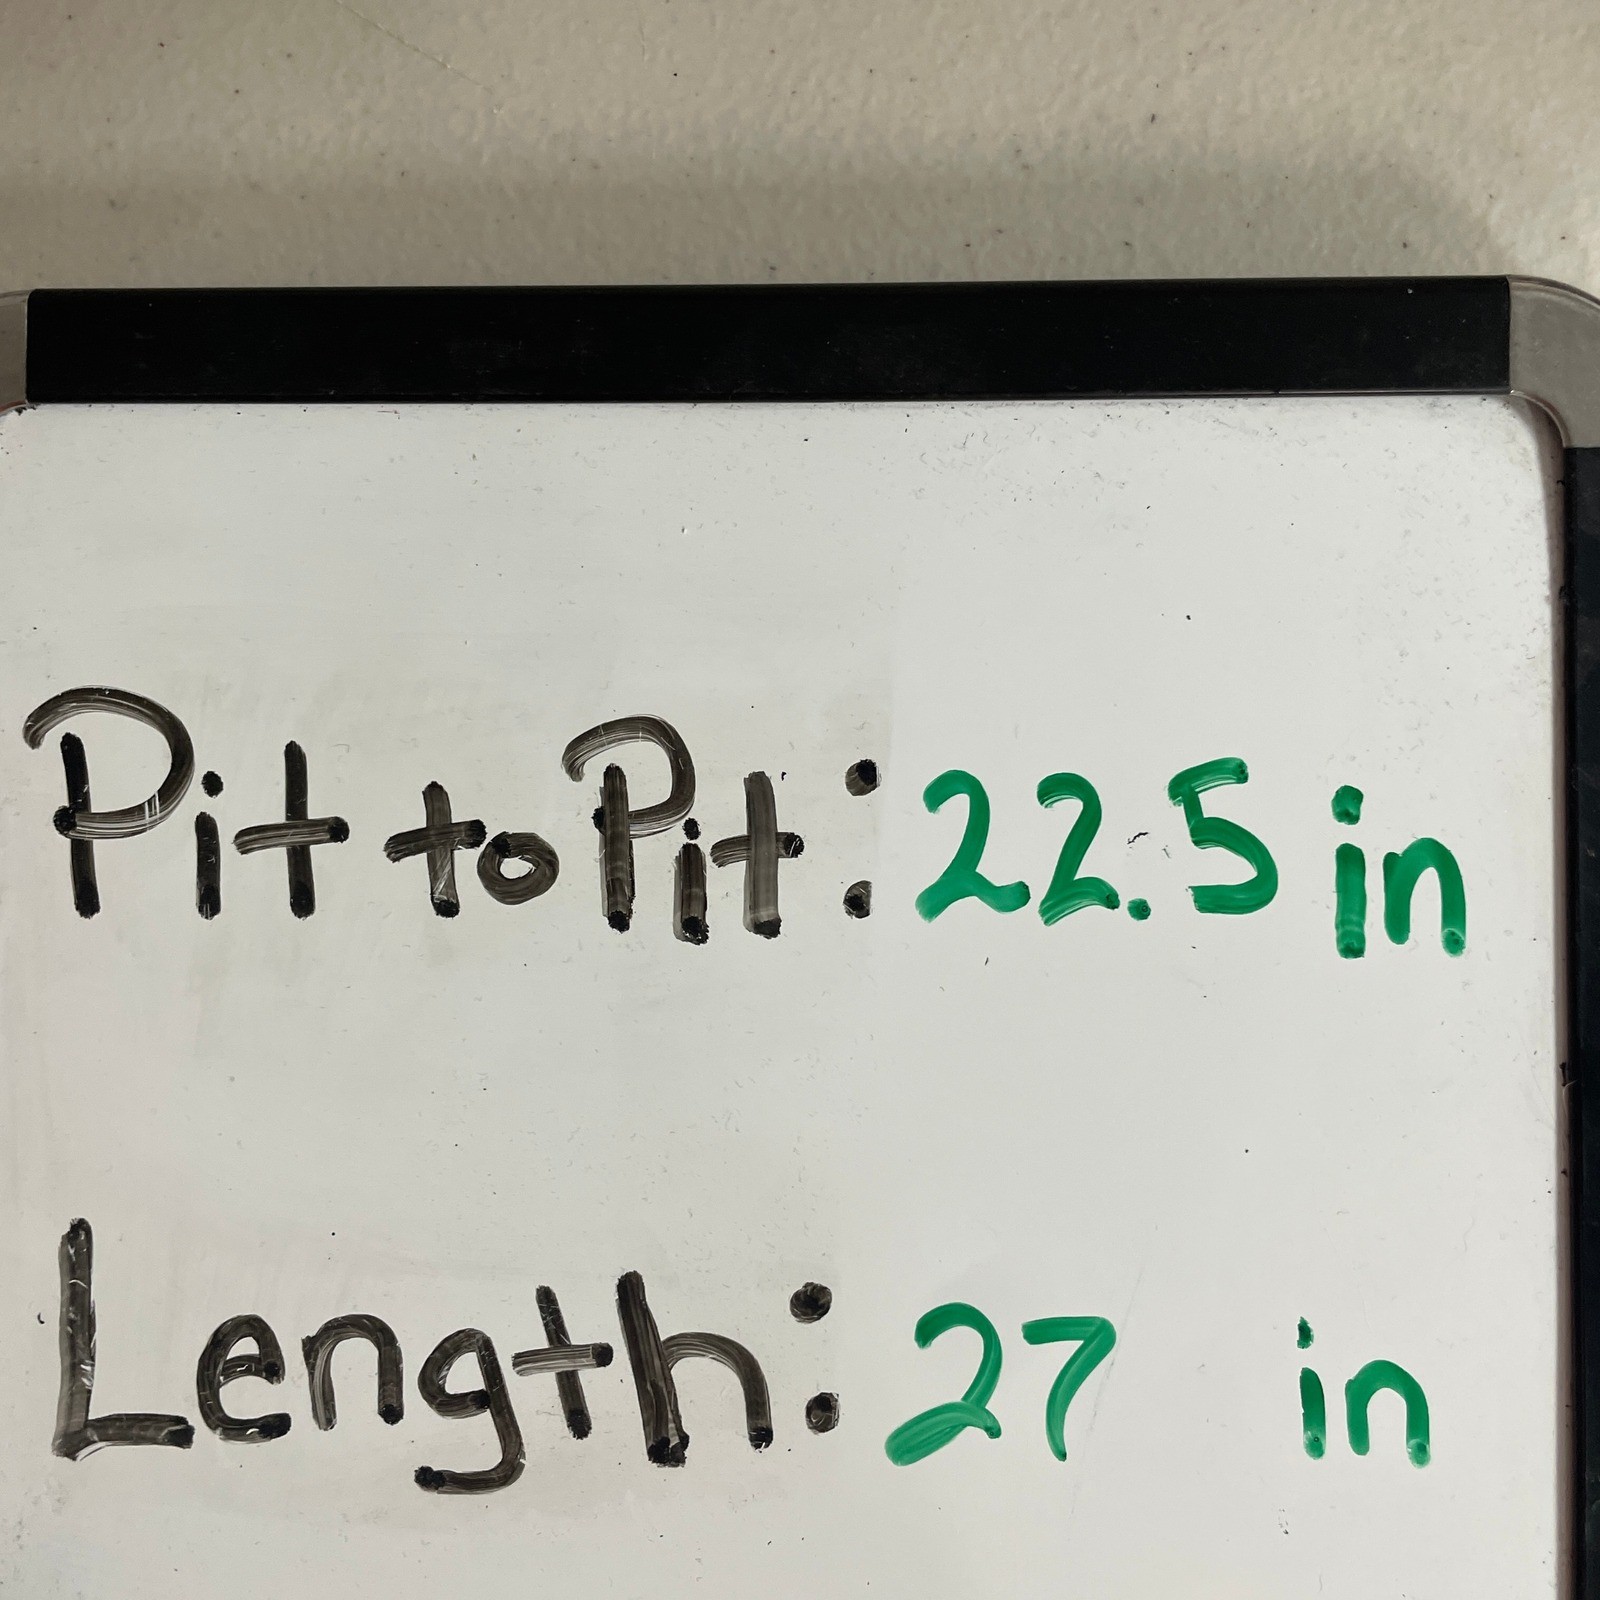 Pit to Pit: 22.5 in
Length: 27 in